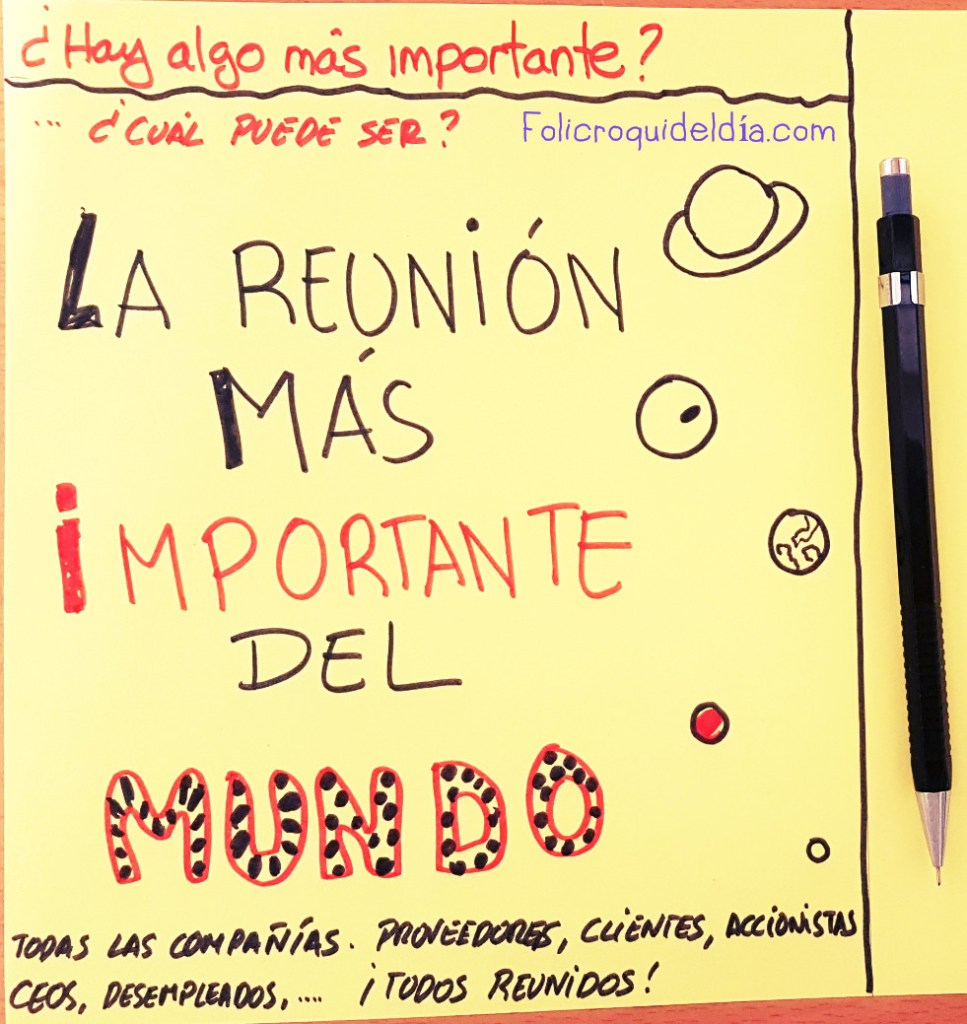 ¿Hay algo más importante?
... ¿CUÁL PUEDE SER?
Folicroquideldía.com
LA REUNIÓN
MÁS
IMPORTANTE
DEL
MUNDO
TODAS LAS COMPAÑÍAS. PROVEEDORES, CLIENTES, ACCIONISTAS
CEOS, DESEMPLEADOS,.... ¡TODOS REUNIDOS!